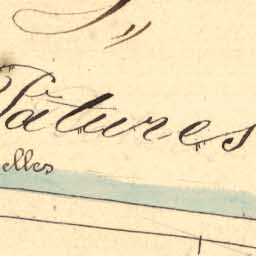 Pâtures
elles